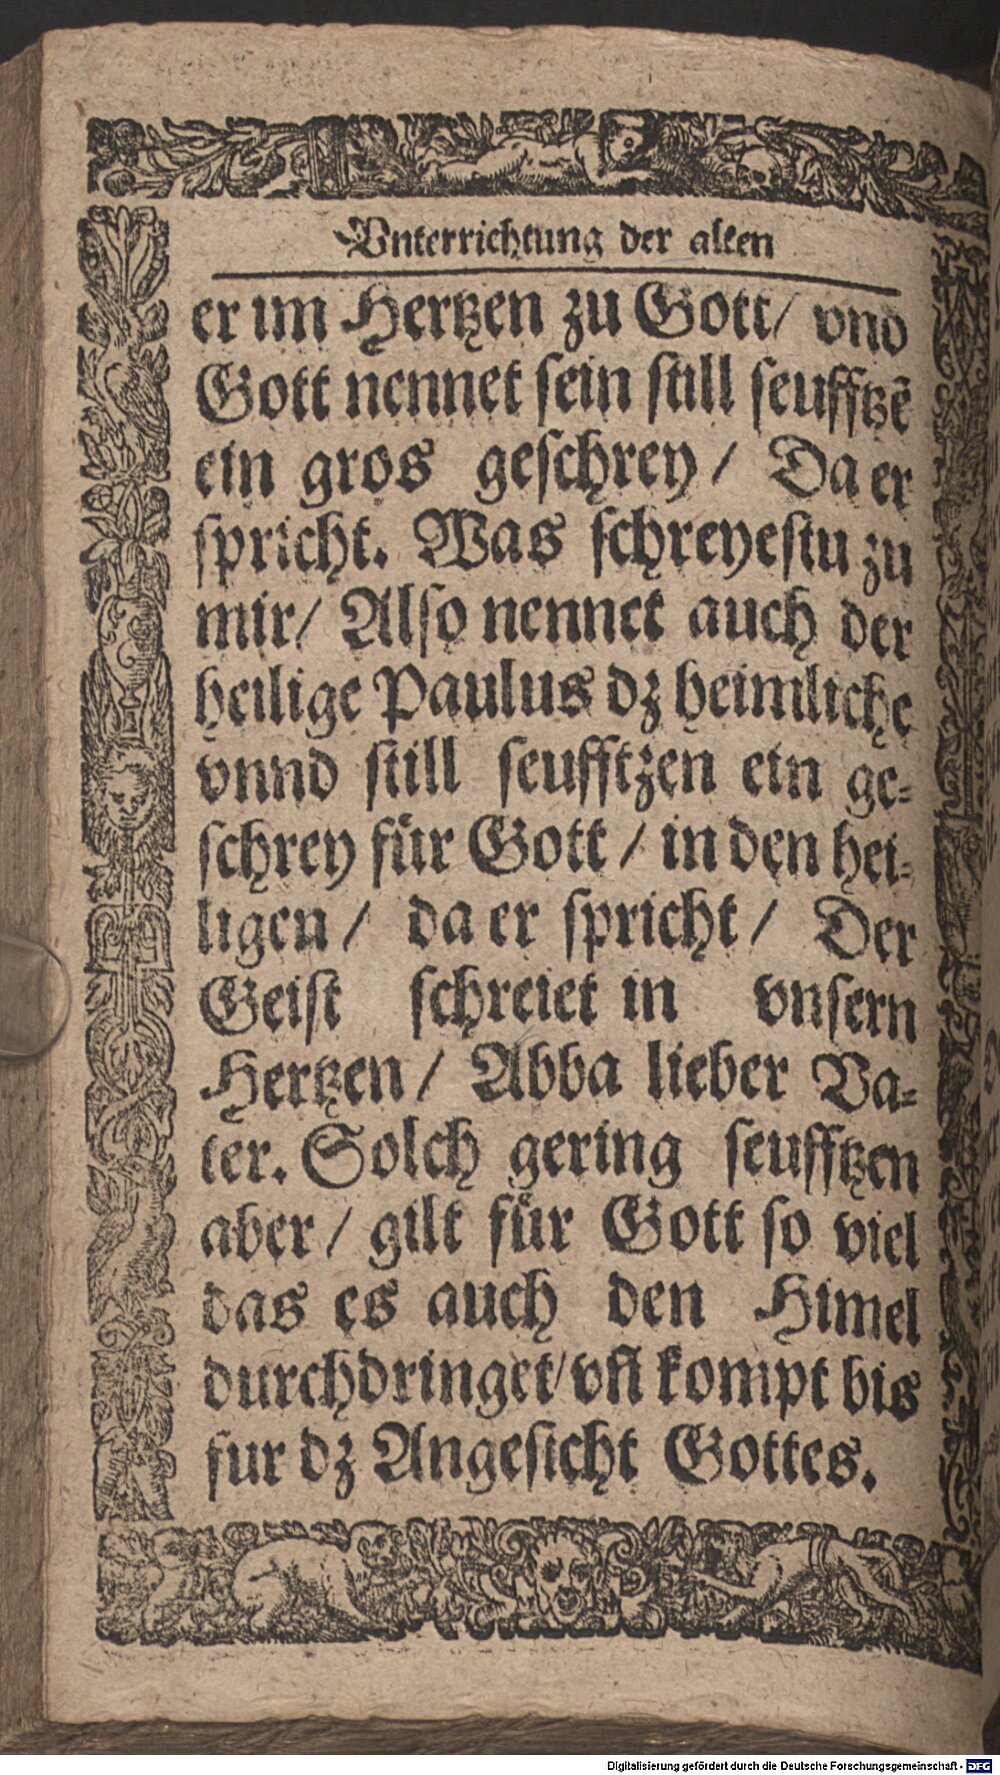 Vnterrichtung der alten
er im Hertzen zu Gott/ vnd
Gott nennet sein still seufftzẽ
ein gros geschrey/ Da er
spricht. Was schreyestu zu
mir/ Also nennet auch der
heilige Paulus dz heimliche
vnnd still seufftzen ein ge-
schrey fuͤr Gott/ in den hei-
ligen/ da er spricht/ Der
Geist schreiet in vnsern
Hertzen/ Abba lieber Va-
ter. Solch gering seufftzen
aber/ gilt fuͤr Gott so viel
das es auch den Himel
durchdringet/ vñ kompt bis
fur dz Angesicht Gottes.
Digitalisierung gefördert durch die Deutsche Forschungsgemeinschaft - DFG